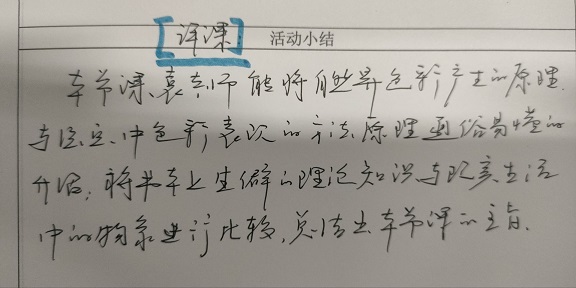 [评课] 活动小结
本节课,袁老师能将自然界色彩产生的原理
与法立中色彩表现的方法、原理通俗易懂的
介绍,将书本上生僻的理论知识与现实生活
中的物象进行比较,总结出本节课的主旨.